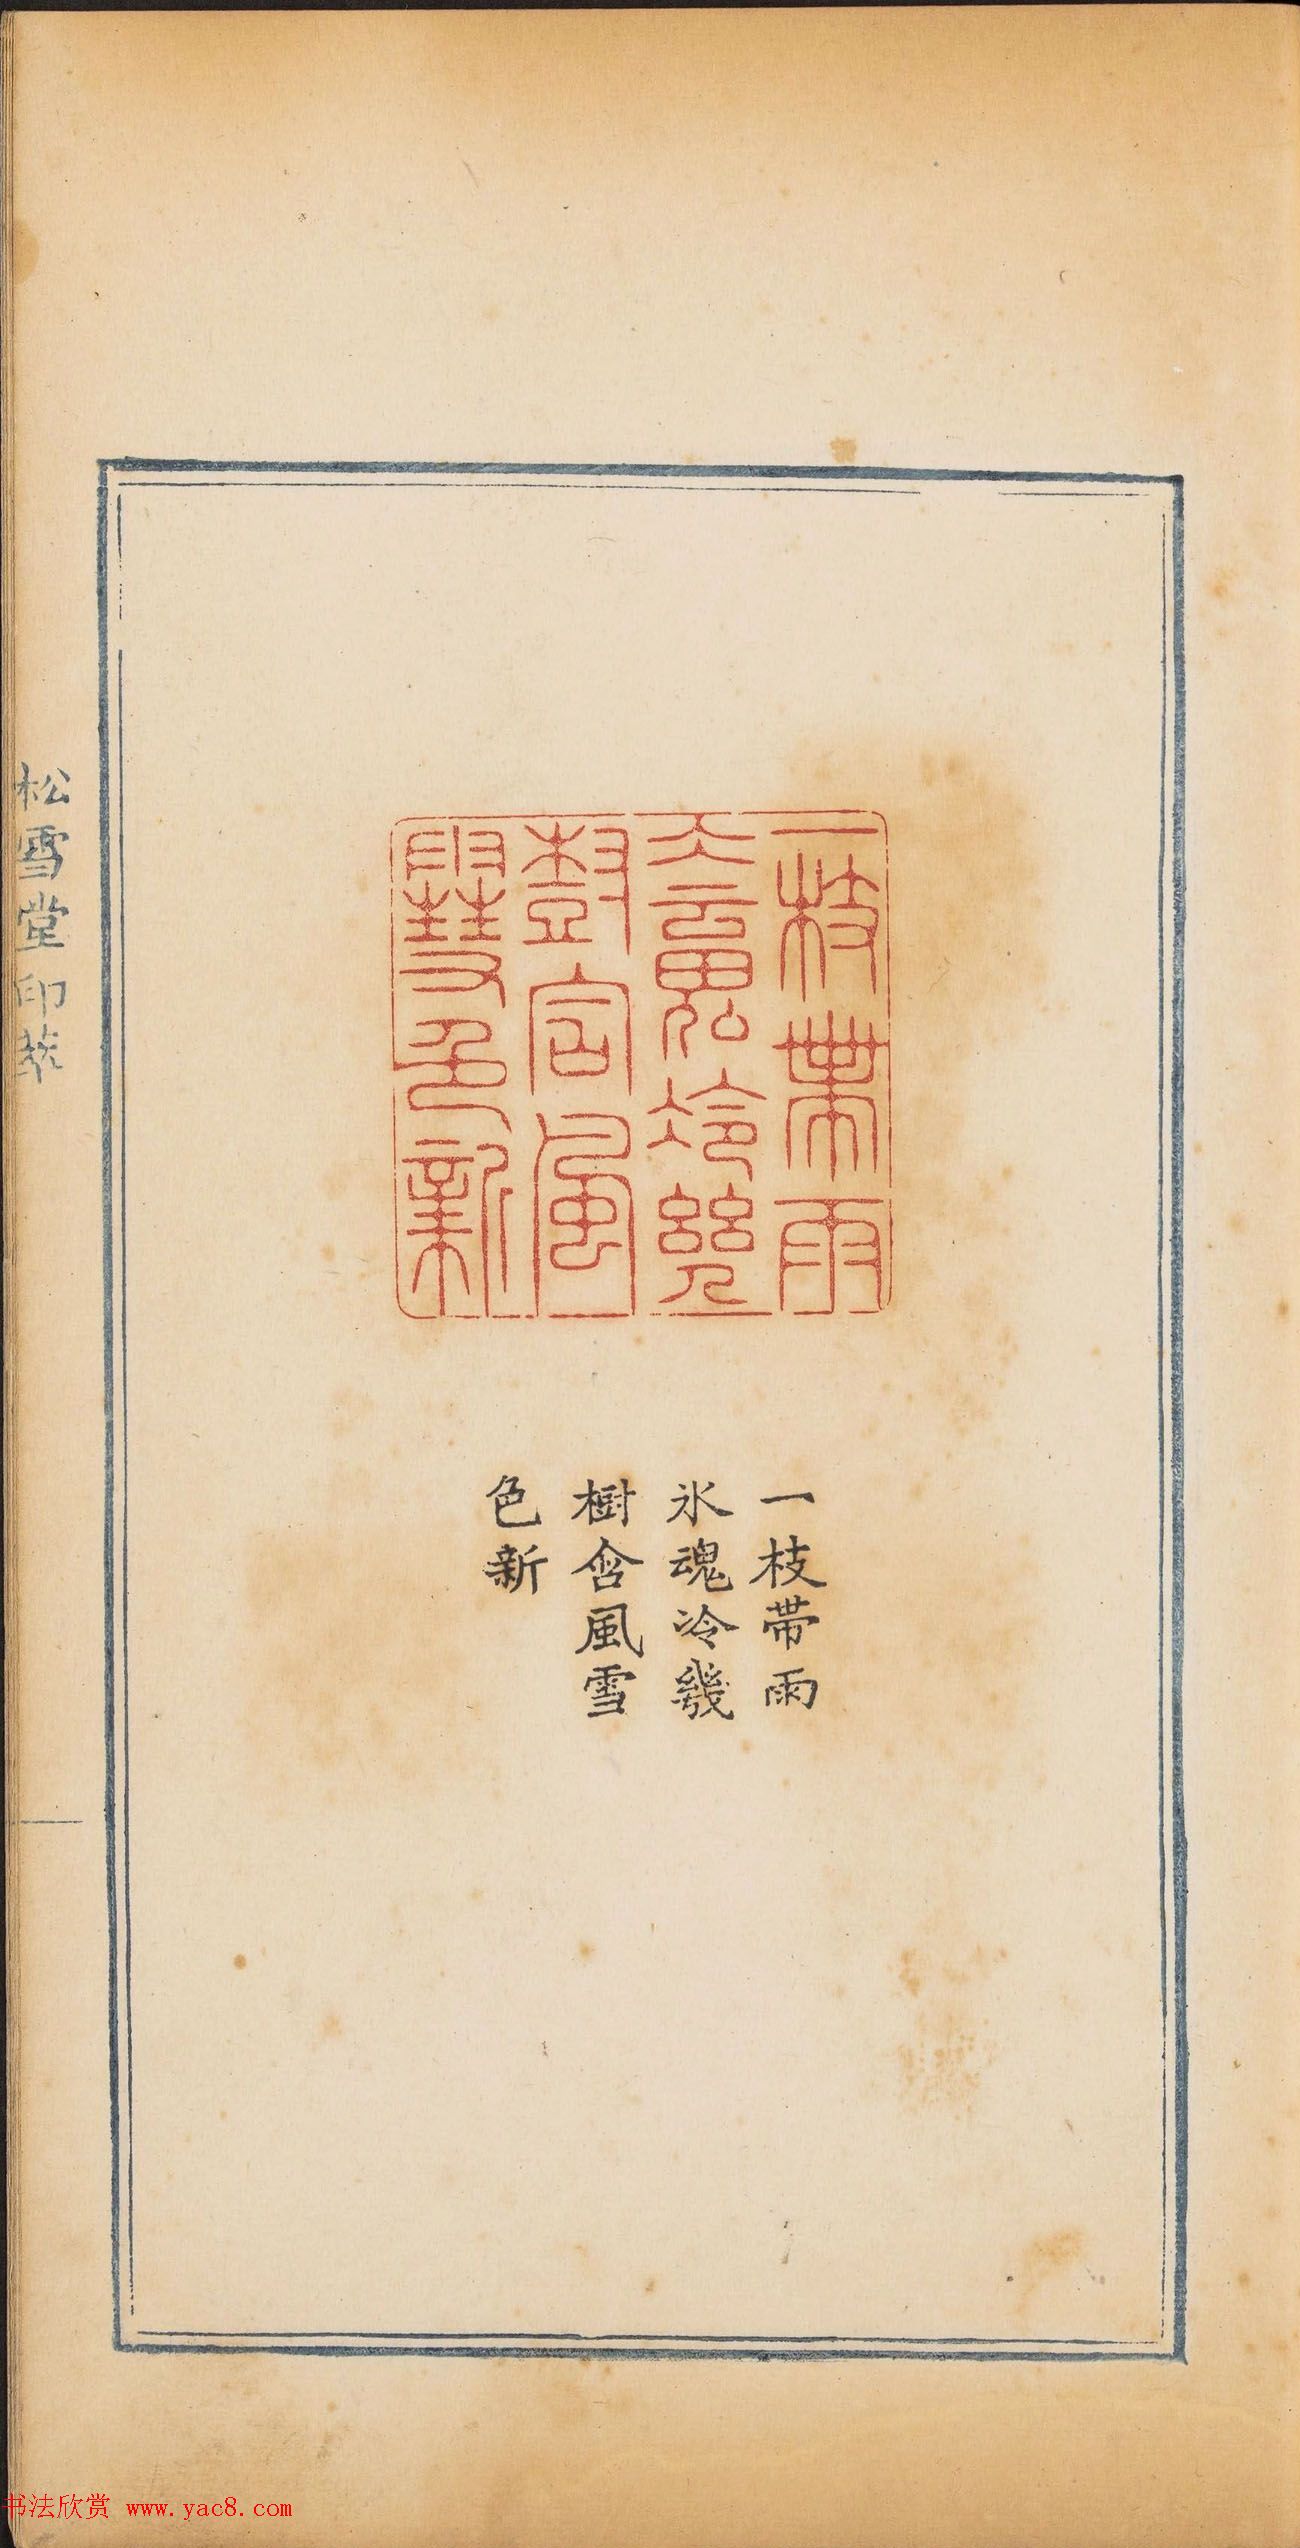 一枝帶雨
氷魂冷幾
樹含風雪
色新
一枝帶雨
氷魂冷幾
樹含風雪
色新
松雪堂印萃
书法欣赏 www.yac8.com